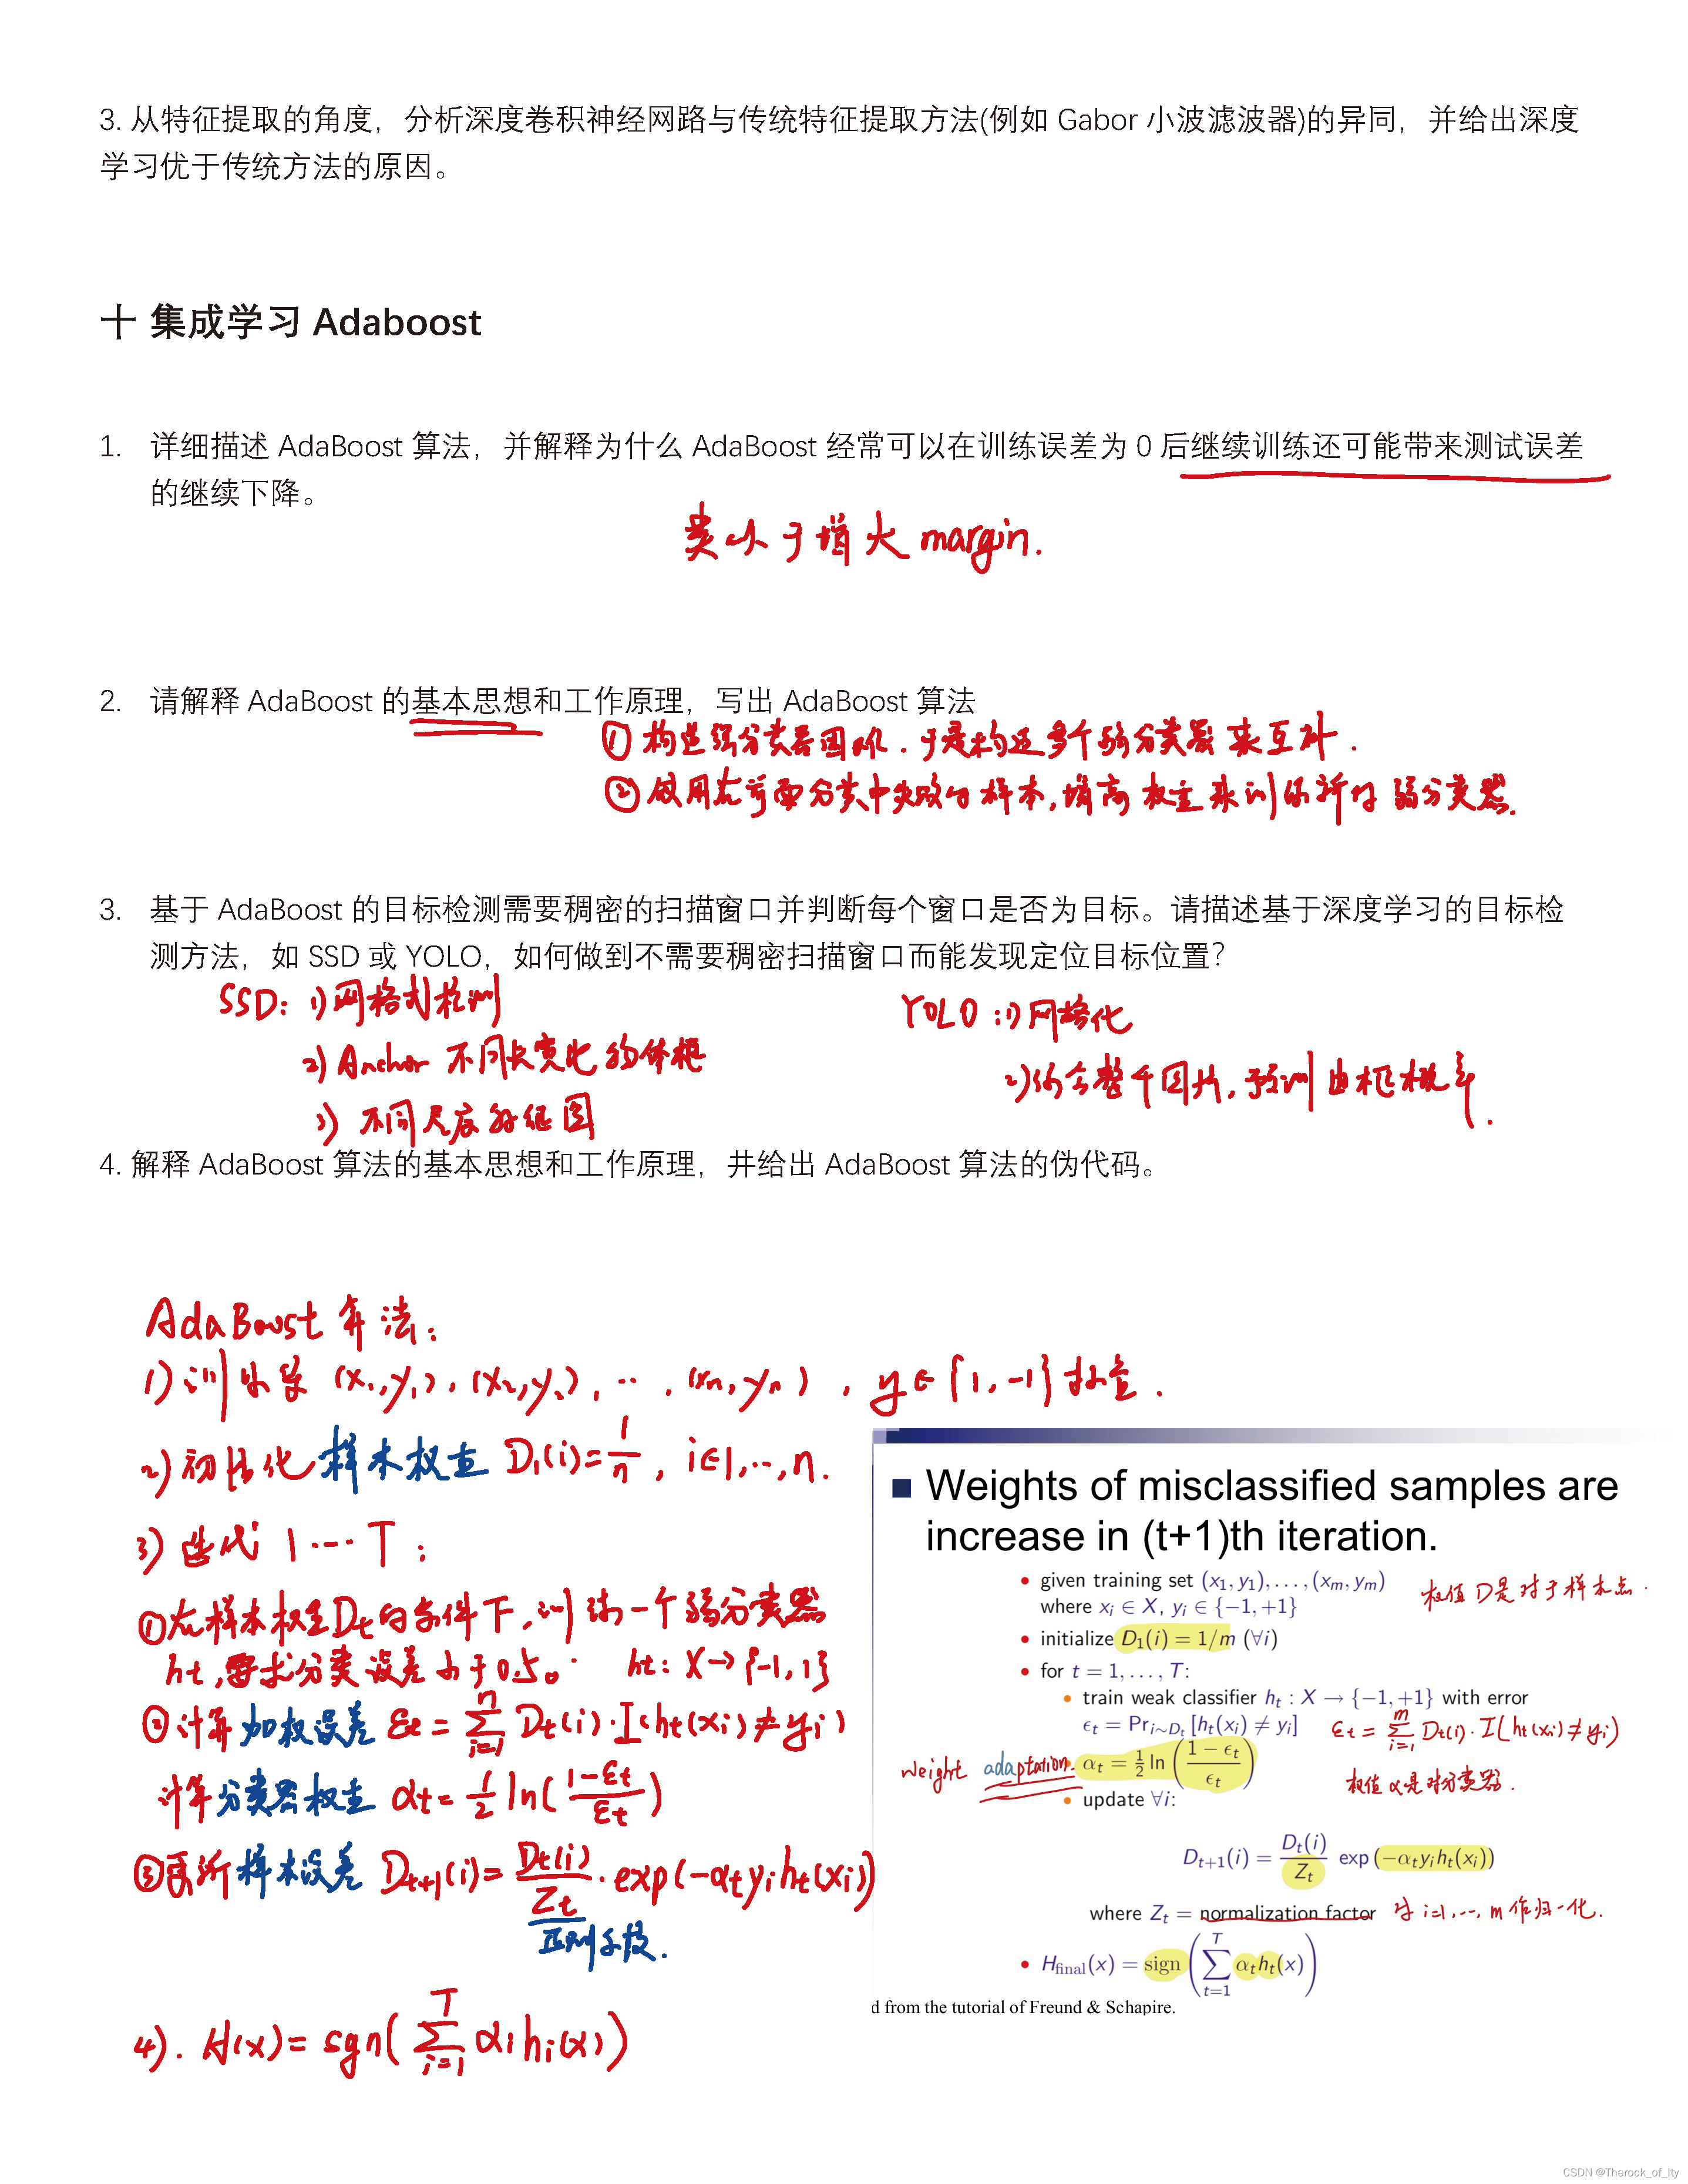 3. 从特征提取的角度，分析深度卷积神经网路与传统特征提取方法(例如 Gabor 小波滤波器)的异同，并给出深度
学习优于传统方法的原因。
十 集成学习 Adaboost
1. 详细描述 AdaBoost 算法，并解释为什么 AdaBoost 经常可以在训练误差为 0 后继续训练还可能带来测试误差
的继续下降。
类似于增大 margin.
2. 请解释 AdaBoost 的基本思想和工作原理，写出 AdaBoost 算法
① 构造强分类器困难. 于是构造多个弱分类器来互补.
② 使用在前面分类中失败的样本, 增高权重来训练新的弱分类器.
3. 基于 AdaBoost 的目标检测需要稠密的扫描窗口并判断每个窗口是否为目标。请描述基于深度学习的目标检
测方法，如 SSD 或 YOLO，如何做到不需要稠密扫描窗口而能发现定位目标位置？
SSD: 1) 网格式检测
2) Anchor 不同长宽比的
3) 不同尺度特征图
YOLO: 1) 网格化
2) 结合整个图片, 预测 框概率.
4. 解释 AdaBoost 算法的基本思想和工作原理，并给出 AdaBoost 算法的伪代码。
AdaBoost 算法:
1) 训练集 (x₁,y₁), (x₂,y₂), …, (xₙ,yₙ), y∈{1,-1} 标签.
2) 初始化样本权重 D₁(i)=1/n, i∈1,…,n.
3) 迭代 1…T:
① 在样本权重Dt的条件下, 训练一个弱分类器
ht, 要求分类误差小于0.5。 ht: X→{-1,1}
② 计算加权误差 εt = Σ_{i=1}^{n} Dt(i)·I(ht(xi)≠yi)
计算分类器权重 αt = ½ ln((1-εt)/εt)
③ 更新样本误差 Dt+1(i) = Dt(i)/Zt · exp(-αt yi ht(xi))
正则手段.
4). H(x) = sgn(Σ_{i=1}^{T} αi hi(x))
■ Weights of misclassified samples are
increase in (t+1)th iteration.
• given training set (x₁, y₁), . . . , (xₘ, yₘ)
where xᵢ ∈ X, yᵢ ∈ {−1, +1}
权值 D是对于样本点.
• initialize D₁(i) = 1/m (∀i)
• for t = 1, . . . , T:
• train weak classifier hₜ : X → {−1, +1} with error
εₜ = Pr_{i∼Dₜ} [hₜ(xᵢ) ≠ yᵢ]
εt = Σ_{i=1}^{m} Dt(i)·I(ht(xi)≠yi)
weight adaptation. • αₜ = ½ ln((1 − εₜ)/εₜ)
权值 α是对分类器.
• update ∀i:
Dₜ₊₁(i) = Dₜ(i)/Zₜ exp(−αₜyᵢhₜ(xᵢ))
where Zₜ = normalization factor
对 i=1,…, m 作归一化.
• H_final(x) = sign(Σ_{t=1}^{T} αₜhₜ(x))
d from the tutorial of Freund & Schapire.
CSDN @Therock_of_lty